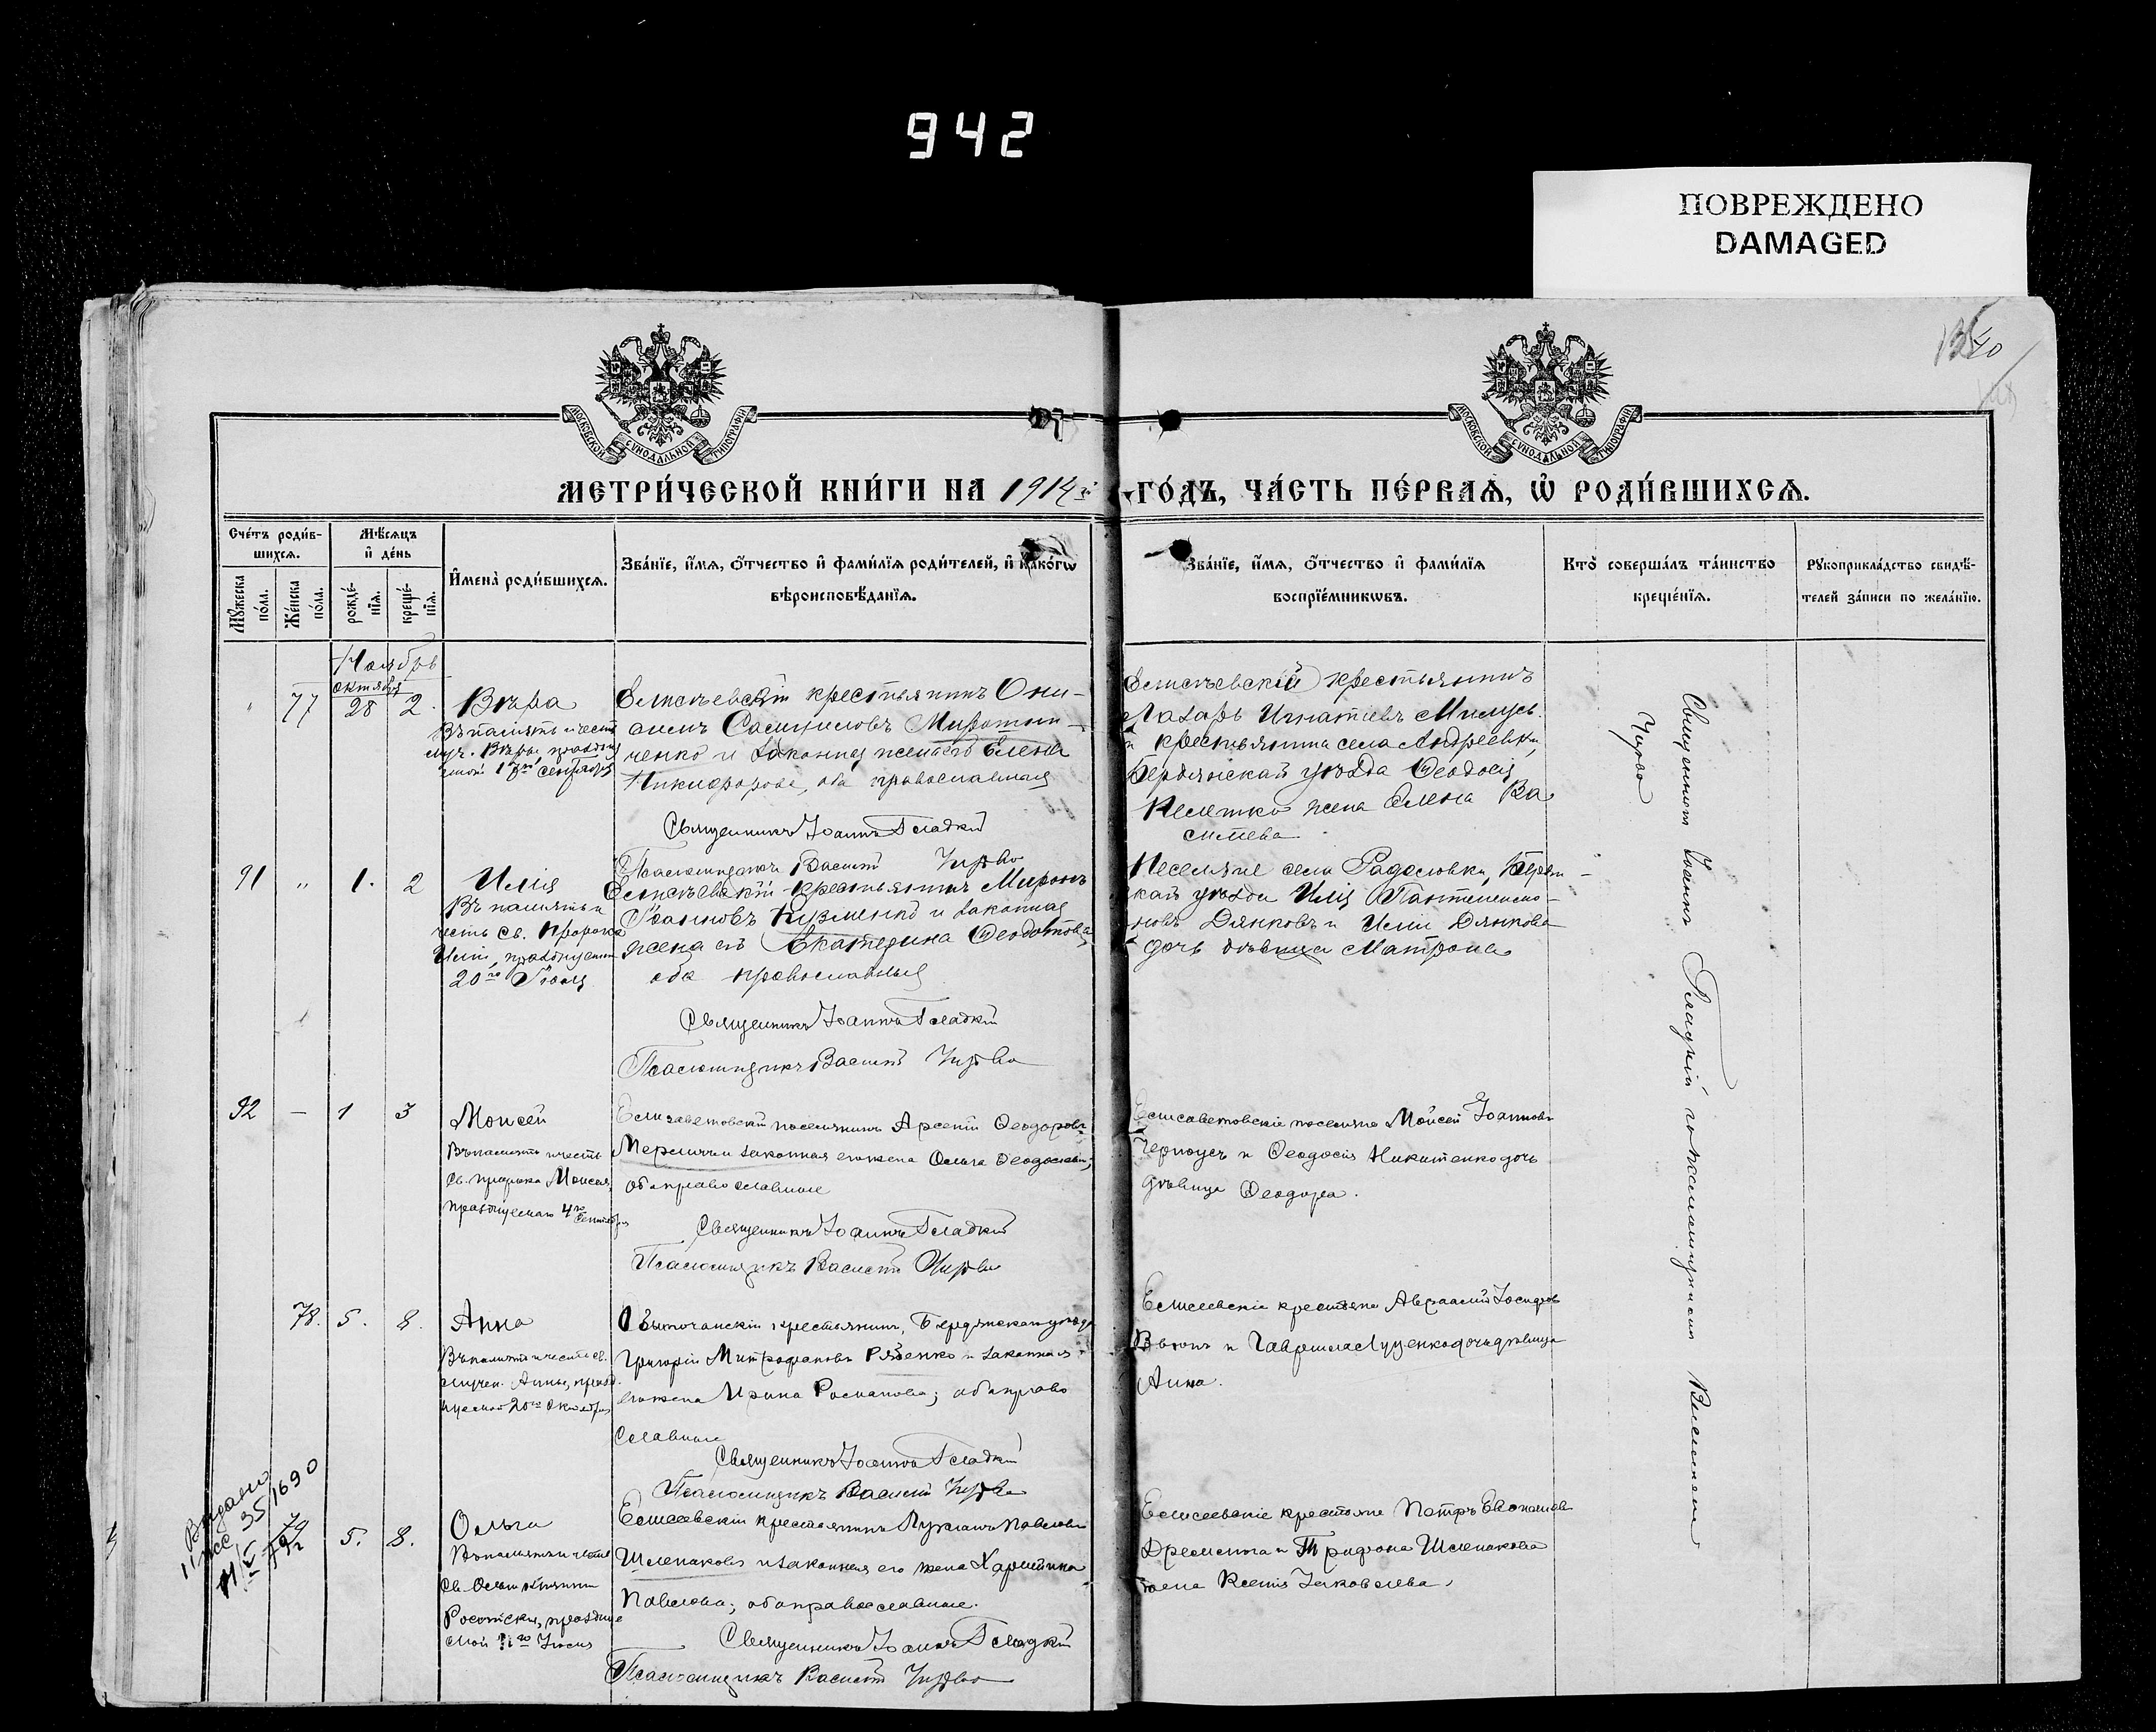 942
ПОВРЕЖДЕНО
DAMAGED
МОСКОВСКОЙ СУНОДАЛЬНОЙ ТИПОГРАФІИ
МОСКОВСКОЙ СУНОДАЛЬНОЙ ТИПОГРАФІИ
МЕТРИ́ЧЕСКОЙ КНИ́ГИ НА 1914й ГО́ДЪ, ЧА́СТЬ ПЕ́РВАѦ, Ѡ҆ РОДИ́ВШИХСѦ.
Сче́тъ роди́в-
шихсѧ.
Мѣ́сѧцъ
и҆ де́нь
Мꙋ́жеска по́ла.
Же́нска по́ла.
рожде́-нїѧ.
креще́-нїѧ.
И҆мена̀ роди́вшихсѧ.
Зва́нїе, и҆́мѧ, ѻ҆́тчество и҆ фами́лїѧ роди́телей, и҆ како́гѡ
вѣроисповѣ́данїѧ.
Зва́нїе, и҆́мѧ, ѻ҆́тчество и҆ фами́лїѧ
воспрїе́мникѡвъ.
Кто̀ соверша́лъ та́инство
креще́нїѧ.
Рꙋкоприкла́дство свидѣ́-
телей за́писи по жела́нїю.
Ноябрь
октября
77 28 2.
Вѣра
Въ память и честь
муч. Вѣры праздну
емой 17го сентября
Елисѣевскій крестьянинъ Они-
симъ Самуиловъ Миротни-
ченко и законная жена его Елена
Никифорова, оба православныя
Священникъ Іоаннъ Гладкій
Псаломщикъ Василій Чирво
Елисѣевскій крестьянинъ
Лазарь Игнатіевъ Милусь
и крестьянина села Андреевки,
Бердянскаго уѣзда Ѳеодосія
жена Елена Ва
силіева
91 „ 1. 2
Илія
Въ память и
честь Св. Пророка
Иліи, празднуемаго
20го Іюля
Елисѣевскій крестьянинъ Миронъ
Іоанновъ Кузменко и законная
жена его Екатерина Ѳеодотова,
оба православныя
Священникъ Іоаннъ Гладкій
Псаломщикъ Василій Чирво
Поселяне села Радоловки, Бердян-
скаго уѣзда Илія Пантелеимо-
новъ Дянковъ и Иліи Дянкова
дочь дѣвица Матрона
92 — 1 3
Моисей
Въ память и честь
Св. пророка Моисея,
празднуемаго 4го Сентября
Елизаветовскій поселянинъ Арсеній Ѳеодоровъ
и законная его жена Ольга Ѳеодосіева;
оба православные
Священникъ Іоаннъ Гладкій
Псаломщикъ Василій Чирво
Елисаветовскіе поселяне Моисей Іоанновъ
Черноусъ и Ѳеодосія Никитенко дочь
дѣвица Ѳеодора.
78. 5. 8.
Анна
Въ память и честь св.
мучен. Анны, празд-
нуемой 20го Октября
Обыточанскій крестьянинъ, Бердянскаго уѣзда
Григорій Митрофановъ Рябенко и законная
его жена Ирина Романова; оба право
славные
Священникъ Іоаннъ Гладкій
Псаломщикъ Василій Чирво
Елисеевскіе крестьяне Авраамій Іосифовъ
Вьюнъ и Гавріила Луценко дочь дѣвица
Анна.
Выдано
79 5. 8.
Ольга
Въ память и честь
Св. Ольги Княгини
Россійскія, праздну
емой 11го Іюля
Елисеевскій крестьянинъ Лукіанъ Павловъ
Шлепаковъ и законная его жена Харитина
Павлова; оба православные.
Священникъ Іоаннъ Гладкій
Псаломщикъ Василій Чирво
Елисеевскіе крестьяне Петръ
и Трифона Шлепакова
жена Ксенія Іаковлева.
Священникъ Іоаннъ Гладкій съ псаломщикомъ Василіемъ
Чирво